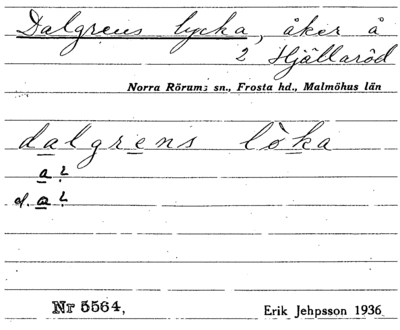 Dalgrens lycka, åker å
2 Hjällaröd
Norra Rörums sn., Frosta hd., Malmöhus län
dalgrens lòka
a ?
el. a ?
Nr 5564,
Erik Jehpsson 1936